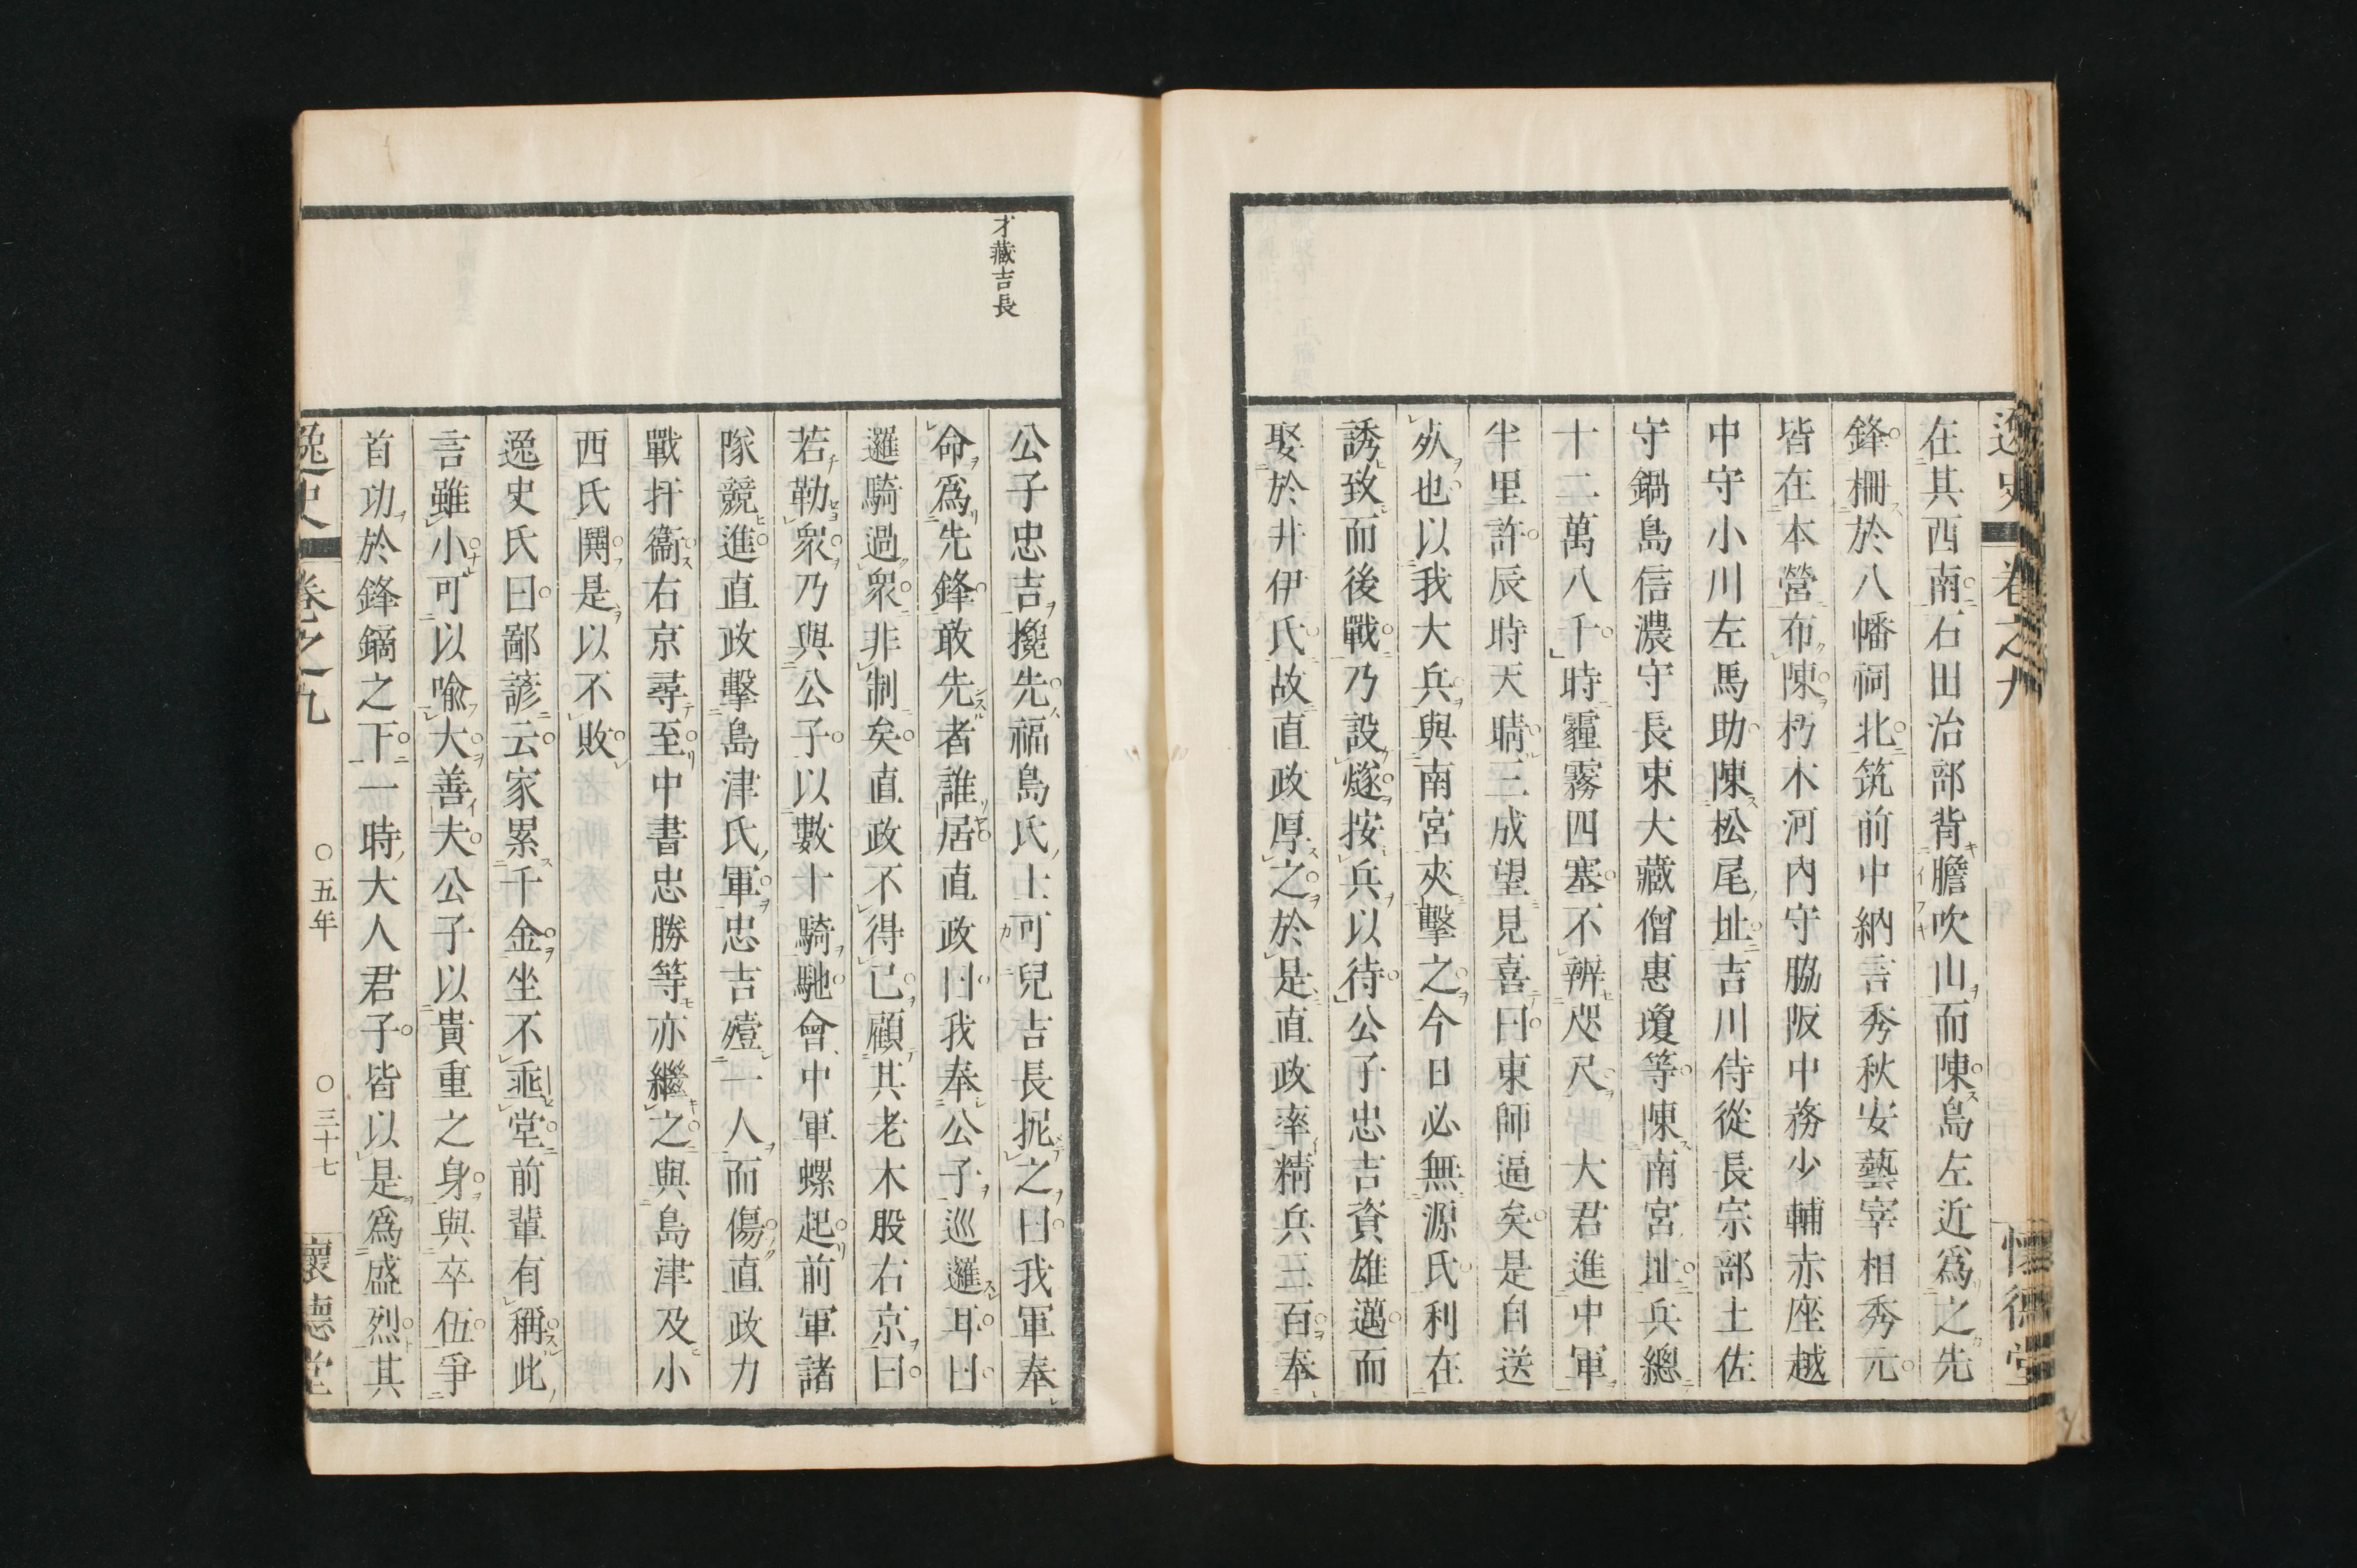 逸史 卷之九 懷德堂
在其西南石田治部背膽吹山而陳島左近爲之先
鋒柵於八幡祠北筑前中納言秀秋安藝宰相秀元
皆在本營布陳朽木河內守脇阪中務少輔赤座越
中守小川左馬助陳松尾址吉川侍從長宗部土佐
守鍋島信濃守長束大藏僧惠瓊等陳南宮址兵總
十二萬八千時霾霧四塞不辨咫尺大君進中軍
半里許辰時天晴三成望見喜曰東師逼矣是自送
死也以我大兵與南宮夾擊之今日必無源氏利在
誘致而後戰乃設燧按兵以待公子忠吉資雄邁而
娶於井伊氏故直政厚之於是直政率精兵三百奉
才藏吉長
公子忠吉攙先福島氏士可兒吉長扼之曰我軍奉
命爲先鋒敢先者誰居直政曰我奉公子巡邏耳曰
邏騎過衆非制矣直政不得已顧其老木股右京曰
若勒衆乃與公子以數十騎馳會中軍螺起前軍諸
隊競進直政擊島津氏軍忠吉殪一人而傷直政力
戰扞衞右京尋至中書忠勝等亦繼之與島津及小
西氏鬨是以不敗
逸史氏曰鄙諺云家累千金坐不垂堂前輩有稱此
言雖小可以喻大善夫公子以貴重之身與卒伍爭
首功於鋒鏑之下一時大人君子皆以是爲盛烈其
逸史 卷之九 ○五年 ○三十七 懷德堂